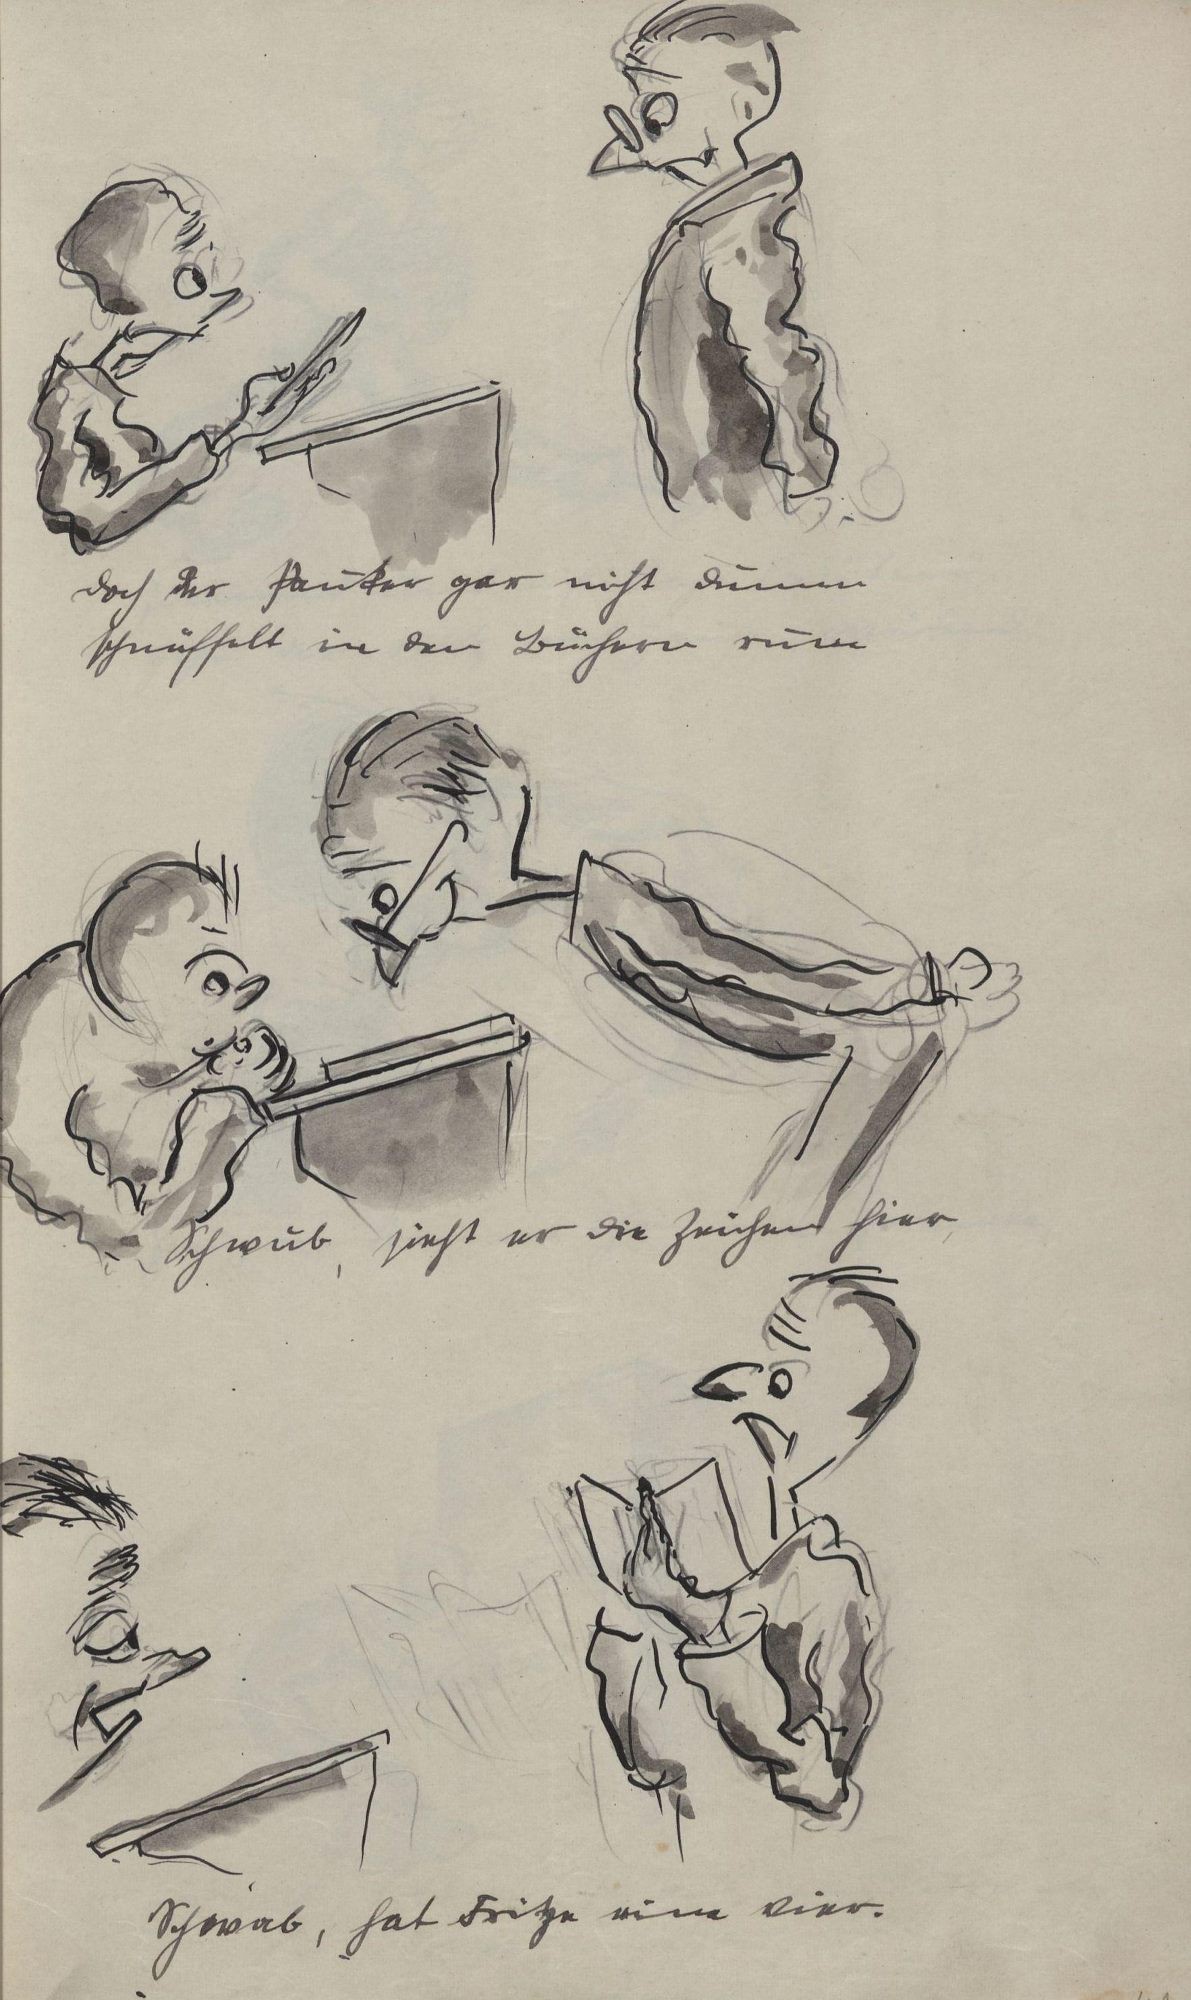 doch der Pauker gar nicht dumm
schnüffelt in den Büchern rum
Schwub, sieht er die Zeichen hier,
Schwab, hat Fritze eine vier.